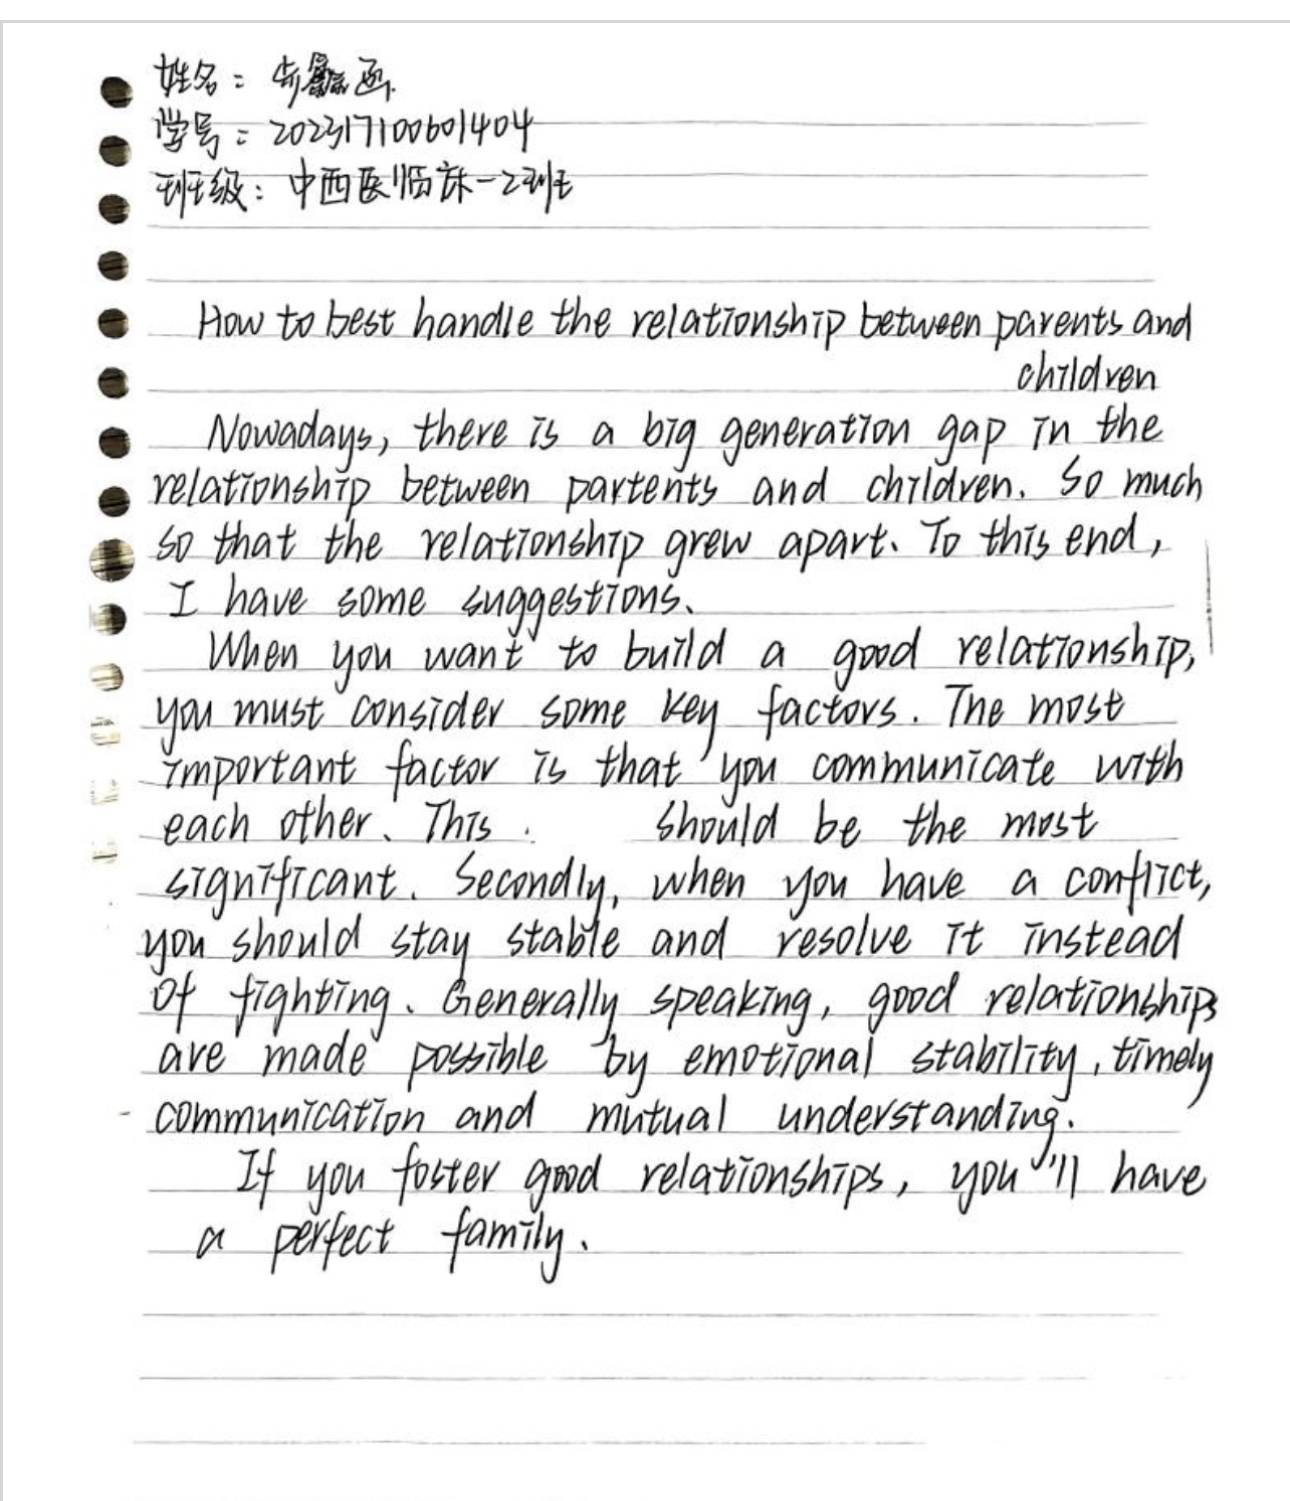 姓名：步鑫画
学号：202317100601404
班级：中西医临床一2班
How to best handle the relationship between parents and
children
Nowadays, there is a big generation gap in the
relationship between partents and children. So much
so that the relationship grew apart. To this end,
I have some suggestions.
When you want to build a good relationship,
you must consider some key factors. The most
important factor is that you communicate with
each other. This should be the most
significant. Secondly, when you have a conflict,
you should stay stable and resolve it instead
of fighting. Generally speaking, good relationships
are made possible by emotional stability, timely
communication and mutual understanding.
If you foster good relationships, you'll have
a perfect family.